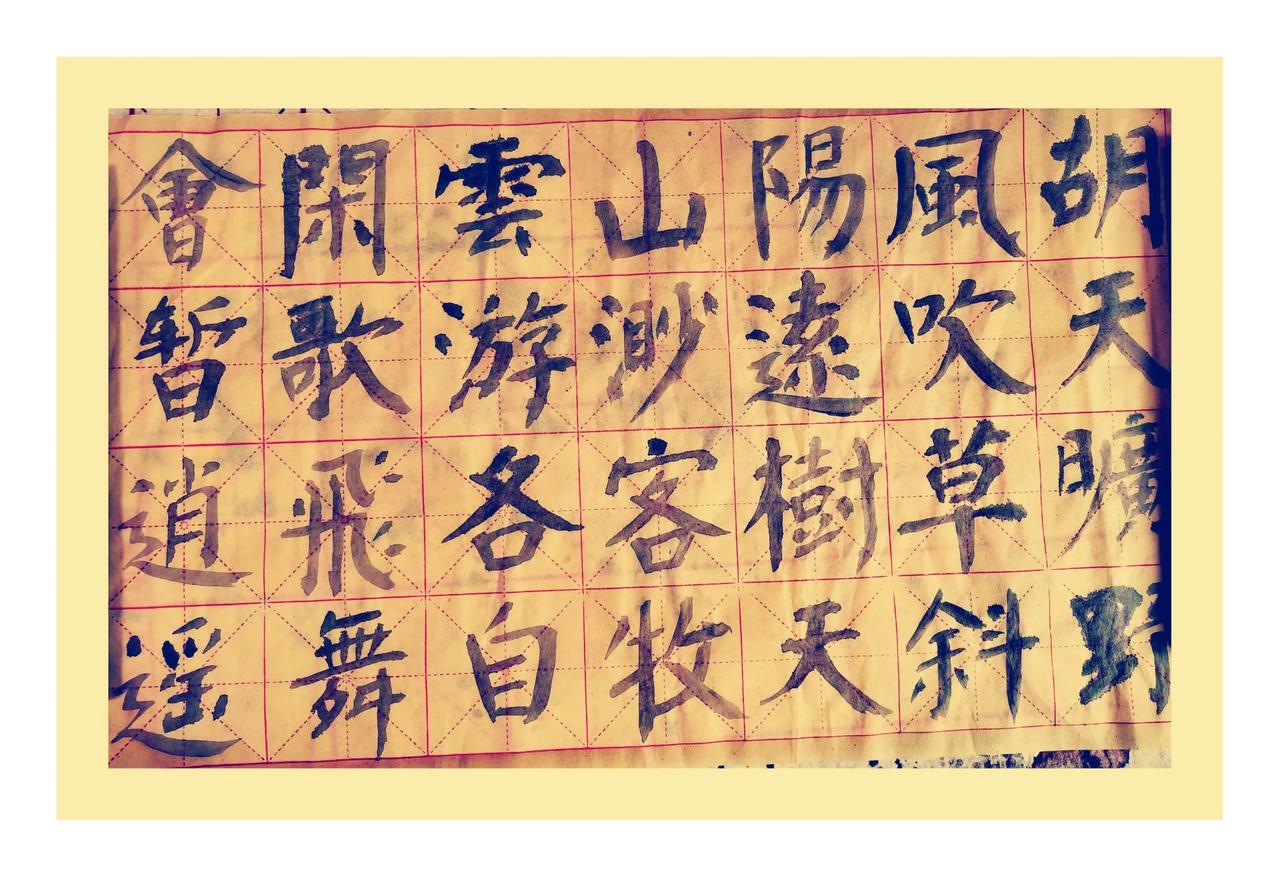 胡天曠野
風吹草斜
陽遠樹天
山渺客牧
雲游各自
閑歌飛舞
會暫逍遥